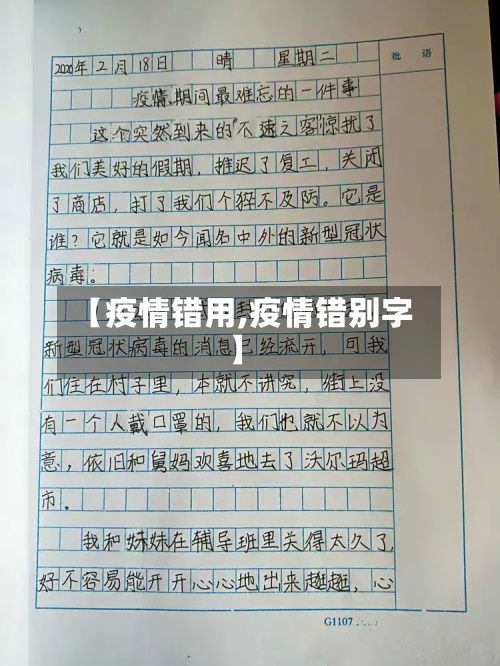 批 语
2020年2月18日 晴 星期二
疫情期间最难忘的一件事
这个突然到来的"不速之客惊扰了
我们美好的假期，推迟了复工，关闭
了商店，打了我们个猝不及防。它是
谁？它就是如今闻名中外的新型冠状
病毒。
【疫情错用,疫情错别字
】
新型冠状病毒的消息已经流开，可我
们住在村子里，本就不讲究，街上没
有一个人戴口罩的，我们也就不以为
意，依旧和舅妈欢喜地去了沃尔玛超
市。
我和妹妹在辅导班里关得太久了，
好不容易能开开心心地出来趟趟，心
G1107